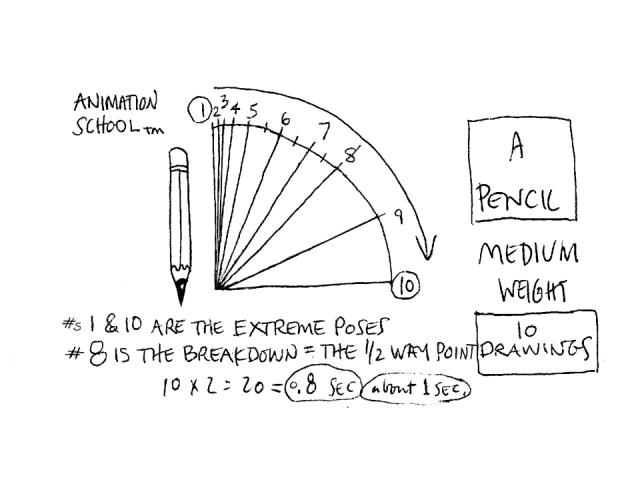 ANIMATION
SCHOOL TM
1 2 3 4 5 6 7 8 9 10
A
PENCIL
MEDIUM
WEIGHT
10
DRAWINGS
#s 1 & 10 ARE THE EXTREME POSES
# 8 IS THE BREAKDOWN = THE 1/2 WAY POINT
10 x 2 = 20 = 0.8 SEC about 1 SEC.